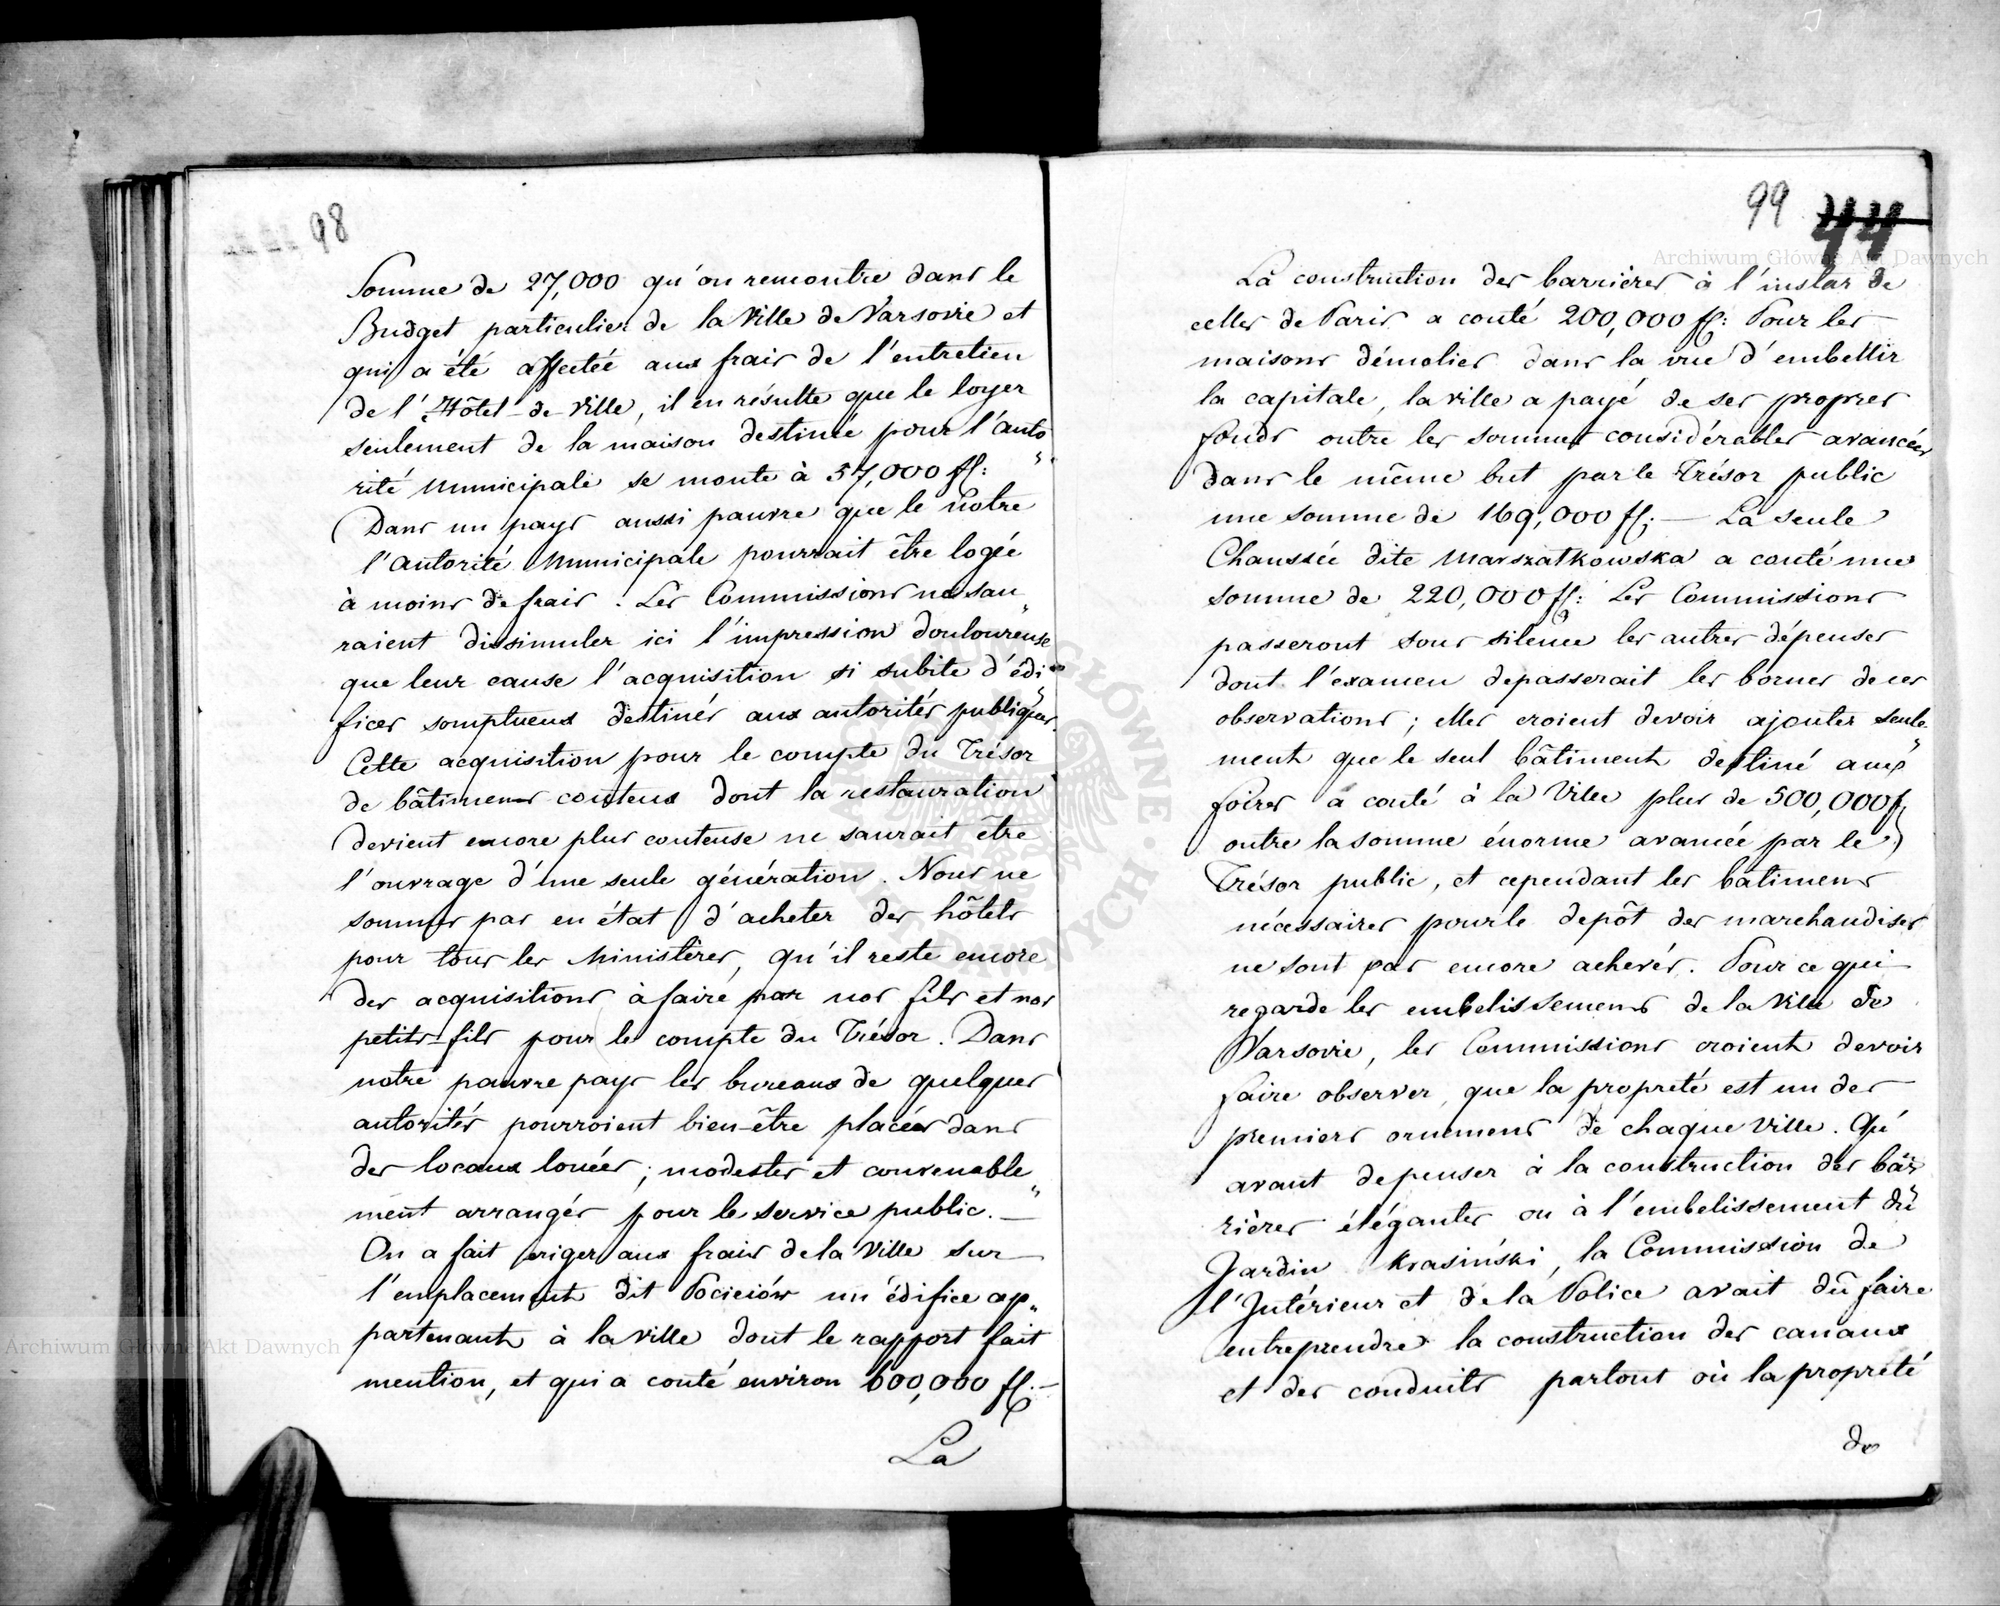 98
Somme de 27,000 qu'on remontre dans le
Budget particulier de la Ville de Varsovie et
qui a été affectée aux frais de l'entretien
de l'Hôtel-de Ville, il en résulte que le loyer
seulement de la maison destinée pour l'auto„
rité Municipale se monte à 57,000 fl:
Dans un pays aussi pauvre que le nôtre
l'autorité Municipale pourrait être logée
à moins de frais. Les Commissions ne sau„
raient dissimuler ici l'impression douloureuse
que leur cause l'acquisition si subite d'édi„
fices somptueux destinés aux autorités publiques.
Cette acquisition pour le compte du Trésor
de bâtimens couteux dont la restauration
devient encore plus couteuse ne saurait être
l'ouvrage d'une seule génération. Nous ne
sommes pas en état d'acheter des hôtels
pour tous les Ministères, qu'il reste encore
des acquisitions à faire par nos fils et nos
petits-fils pour le compte du Trésor. Dans
notre pauvre pays les bureaux de quelques
autorités pourroient bien-être placées dans
des locaux louées; modestes et convenable„
ment arrangés pour le service public. —
On a fait eriger aux frais de la Ville sur
l'emplacement dit Pociejów un édifice ap„
partenant à la ville dont le rapport fait
mention, et qui a couté environ 600,000 fl. —
La
99 44
La construction des barrières à l'instar de
celles de Paris a couté 200,000 fl: Pour les
maisons démolies dans la vue d'embellir
la capitale, la ville a payé de ses propres
fonds outre les sommes considérables avancées
dans le même but par le Trésor public
une somme de 169,000 fl; — La seule
Chaussée dite Marszatkowska a couté une
somme de 220,000 fl: Les Commissions
passeront sous silence les autres dépenses
dont l'examen depasserait les bornes de ces
observations; elles croient devoir ajouter seule„
ment que le seul bâtiment destiné aux
foires a couté à la Ville plus de 500,000 f
outre la somme énorme avancée par le
Trésor public, et cependant les bâtimens
nécessaires pour le depôt des marchandises
ne sont pas encore achevés. Pour ce qui
regarde les embelissemens de la Ville de
Varsovie, les Commissions croient devoir
faire observer, que la propreté est un des
premiers ornemens de chaque Ville. Qu'
avant depenser à la construction des bar„
rières élégantes ou à l'embelissement du
Jardin Krasiński, la Commission de
l'Intérieur et de la Police avait dû faire
entreprendre la construction des canaux
et des conduits partout où la propreté
de
Archiwum Główne Akt Dawnych
Archiwum Główne Akt Dawnych